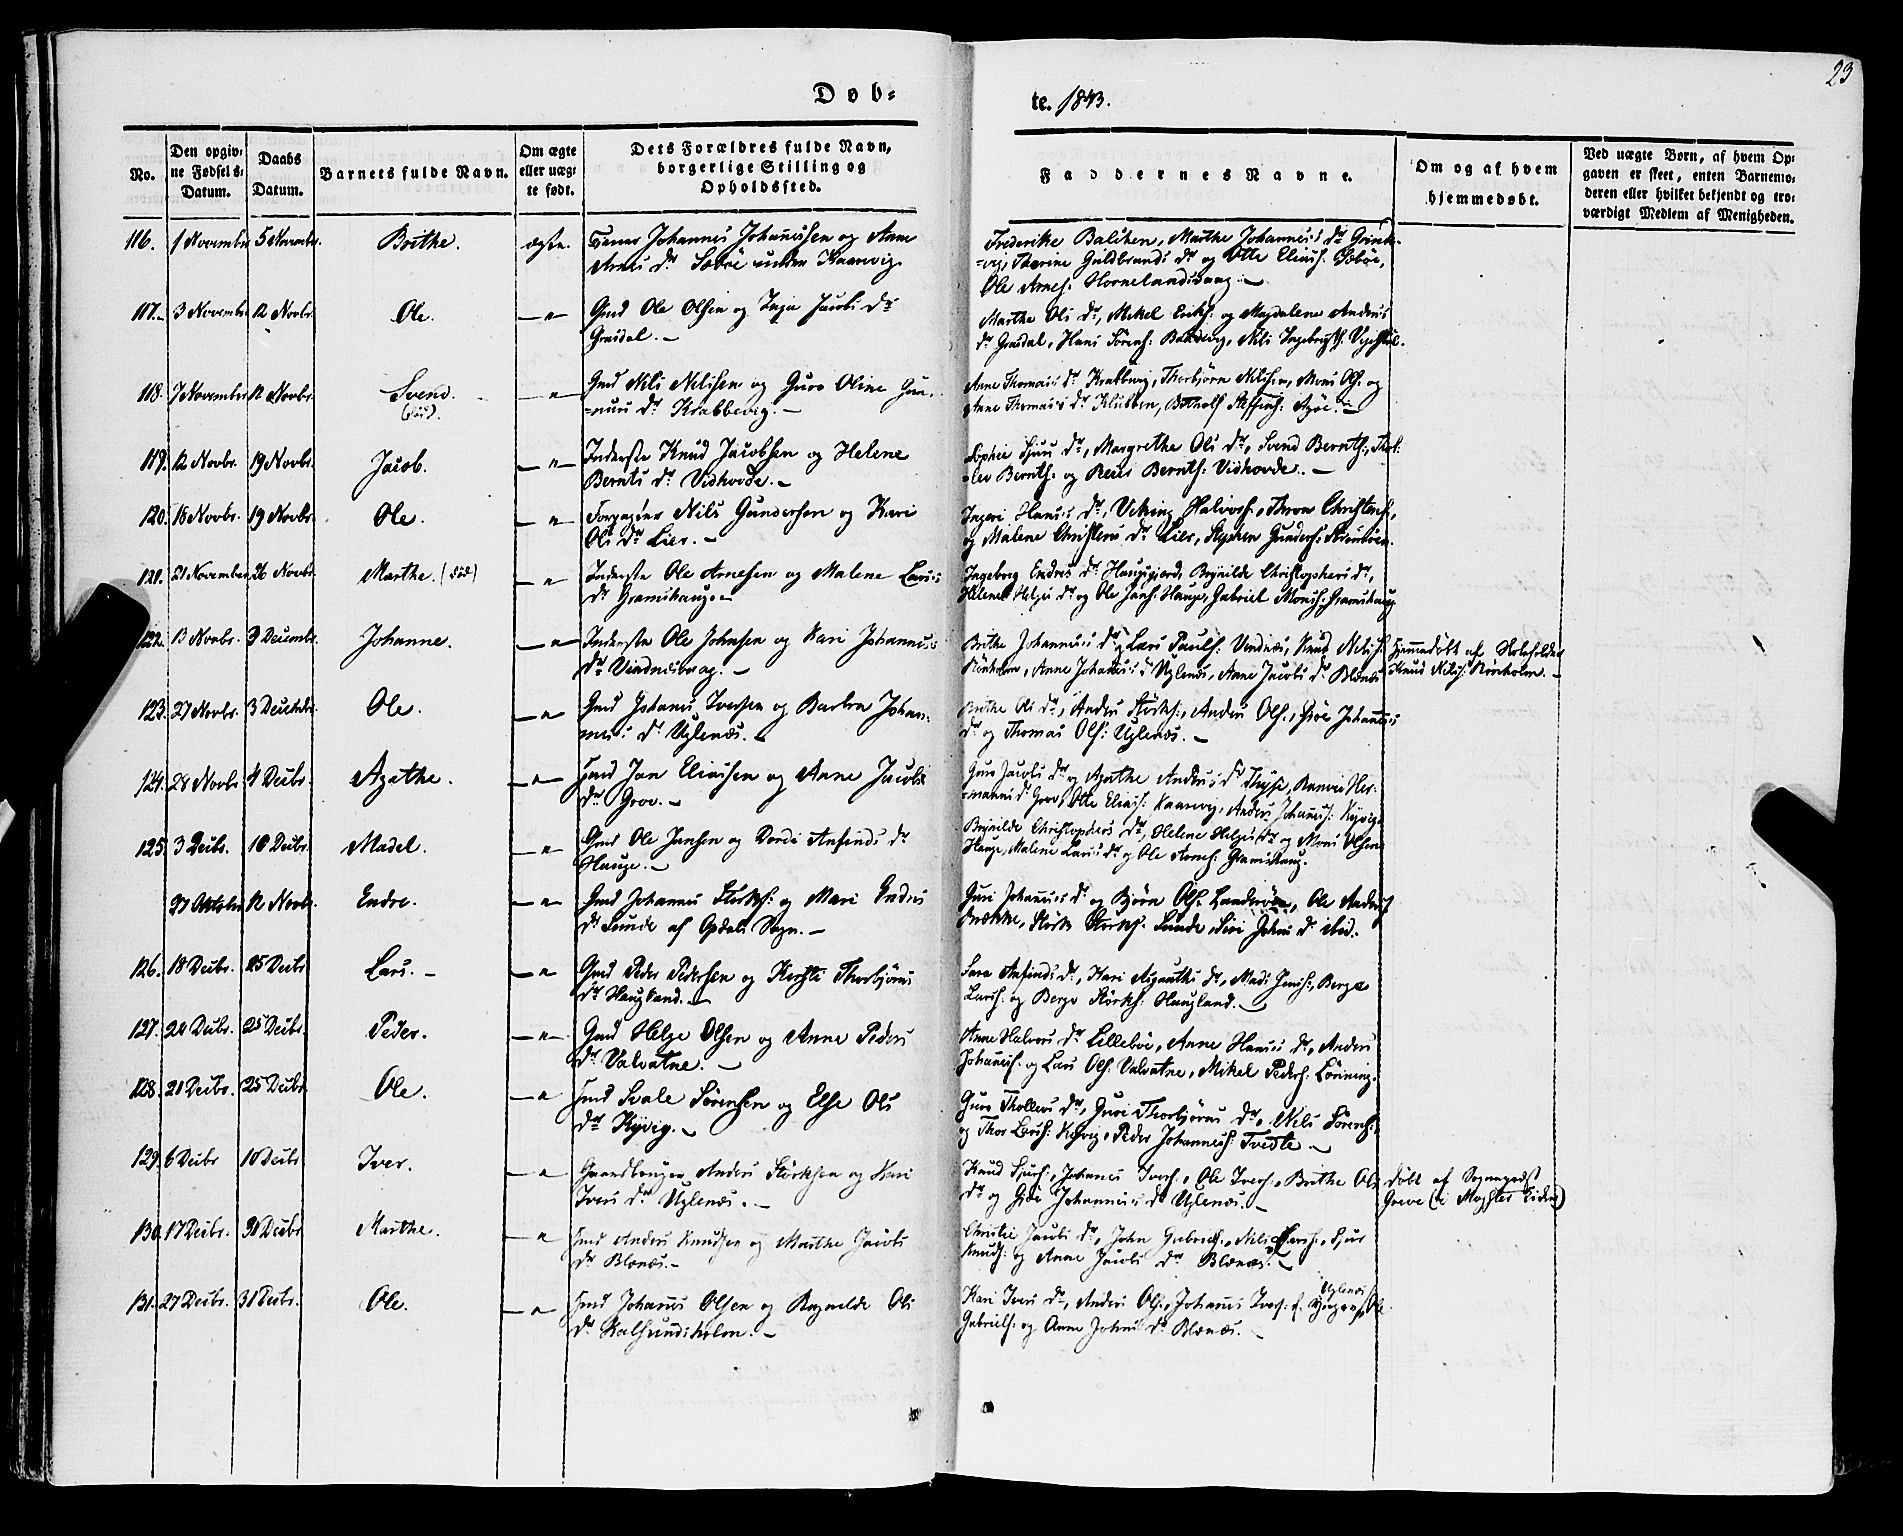 23
Døb-
te. 1843.
No.
Den opgiv-
ne Fødsels-
Datum.
Daabs
Datum.
Barnets fulde Navn.
Om ægte
eller uæg-
te født.
Dets Forældres fulde Navn,
borgerlige Stilling og
Opholdssted.
Faddernes Navne.
Om og af hvem
hjemmedøbt.
Ved uægte Børn, af hvem Op-
gaven er skeet, enten Barnemo-
deren eller hvilket bekjendt og tro-
værdigt Medlem af Menigheden.
116. 1 November 5 November. Brithe. ægte. Johannes Johannessen og Anne
Arnes Dr Sæbøe under Kaarevig
Frederikke Balchen, Marthe Johanneses Dr Grinde-
=vig, Guldbrands Dr og Otte Elias: Sæbøe,
Ole Arnes: Hornelandsvaag. -
117. 3 November 12 Novbr. Ole. -"- Gmd Ole Olsen og Inga Jacobs Dr
Grøsdal. -
Marthe Ols Dr, Mikel Eriks: og Magdalene Anders
Dr Grøsdal, Hans Sørens: Nils Ingebrigts:
118. 7 November 12 Novbr. Svend. (død). -"- Gmd Nils Nilssen og Guro Oline Gun-
=nars Dr Krabbevig. -
Anne Thomas Dr Krabbevig, Thorbjørn Nilssen, Mons Ols: og
Anne Thomas Dr Klubben, Steffens: Agøe. -
119. 12 Novbr. 19 Novbr. Jacob. -"- Inderste Knud Jacobsen og Helene
Bernts Dr Vidhovde. -
Sophie Sjurs Dr, Margrethe Ols Dr, Svend Bernths:,
Bernths: og Bernths: Vidhovde. -
120. 18 Novbr. 19 Novbr. Ole. -"- Forpagter Nils Gundersen og Kari
Ols Dr Lier. -
Ingeri Hanses Dr, Viking Halvors:, Christens:,
og Malene Christens Dr Lier, Stephen Gunders:
121. 21 November 26 Novbr. Marthe. (død) -"- Inderste Ole Arnesen og Malene Larses
Dr Gramshaug. -
Ingeborg Endres Dr Haugsgjerd, Brynilde Christophers Dr,
Helene Helges Dr og Ole Jans: Hauge, Gabriel Mons: Gramshaug
122. 13 Novbr. 3 Decembr. Johanne. -"- Inderste Ole Johnsen og Kari Johanneses
Dr Vindnæsvaag. -
Brithe Johanneses Dr, Lars Pauls: Vindnæs, Knud Nils:
Rørholm, Anne Johanneses Dr Uglenæs, Anne Jacobs Dr Blænæs
Hjemmedøbt af Skoleholder
Knud Nils: Rørholm. -
123. 27 Novbr. 3 Decembr. Ole. -"- Gmd Johanes Iversen og Barbra Johan-
neses Dr Uglenæs. -
Brithe Ols Dr, Anders Størks:, Anders Ols:, Johanneses
Dr og Thomas Ols: Uglenæs. -
124. 28 Novbr. 4 Decbr. Agathe. -"- Gmd Jon Eliassen og Anne Jacobs
Dr Grov. -
Guro Jacobs Dr og Agathe Anders Dr Rannei Her-
=manns Dr Grov, Otte Elias: Kaarevig, Anders Johannes: Kyvig.
125. 3 Decbr. 10 Decbr. Madel. -"- Gmd Ole Jansen og Dordi Anfinds Dr
Hauge. -
Brynilde Christophers Dr, Helene Helges Dr og Mons Olsen
Hauge, Malene Larses Dr og Ole Arnes: Gramshaug.
27 October 12 Novbr. Endre. -"- Gmd Johannes Størks: og Mari Endres
Dr Lunde af Opdals Sogn. -
Guri Johanneses Dr og Bjørn Ols: Landerøen, Ole Anders:
Brække, Størk Størks: Lunde, Siri Johns Dr ibid.
126. 18 Decbr. 25 Decbr Lars. - -"- Gmd Peder Pedersen og Kirsti Thorbjørns
Dr Haugland. -
Sara Anfinds Dr, Kari Aigauths Dr, Mads Jens:, Berge
Lars: og Berge Størks: Haugland. -
127. 20 Decbr. 25 Decbr. Peder. -"- Gmd Helge Olsen og Anne Peders
Dr Valvatne. -
Anne Halvors Dr Lillebøe, Anne Hanses Dr, Anders
Johannes: og Lars Ols: Valvatne, Mikel Peders: Lønning.
128. 21 Decbr. 25 Decbr Ole. -"- Gmd Svale Sørensen og Else Ols
Dr Kyvig. -
Guro Thollevs Dr, Guri Thorbjørns Dr, Nils Sørens:
og Thor Lars: Kyvig, Peder Johannes: Tvedte -
129. 6 Decbr 10 Decbr Iver. -"- Anders Størksen og Kari
Ivers Dr Uglenæs. -
Knud Sjurs:, Johanes Ivers:, Ole Ivers:, Brithe Ols
Dr og Johanneses Dr Uglenæs. -
døbt af Sognepræst
Greve (i Møgster Kirke)
130. 17 Decbr. 31 Decbr Marthe. -"- Gmd Anders Knudsen og Marthe Jacobs
Dr Blænæs. -
Christie Jacobs Dr, John Gabriels:, Nils Lars:, Sjur
Knuds: og Anne Jacobs Dr Blænæs. -
131. 27 Decbr. 31 Decbr. Ole. -"- Gmd Johanes Olsen og Ragnilde Ols
Dr Kalsundsholm. -
Uglenæs
Kari Ivers Dr, Anders Ols:, Johanes Ivers: Ole
Gabriels: og Anne Johns Dr Blænæs. -